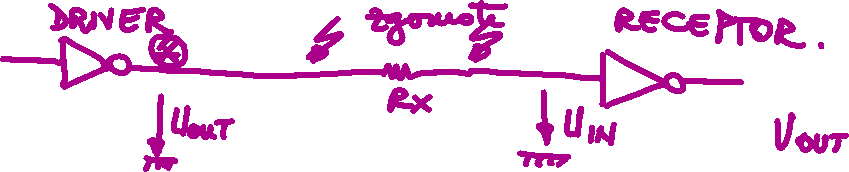 DRIVER zgomote RECEPTOR.
RX
UOUT UIN UOUT